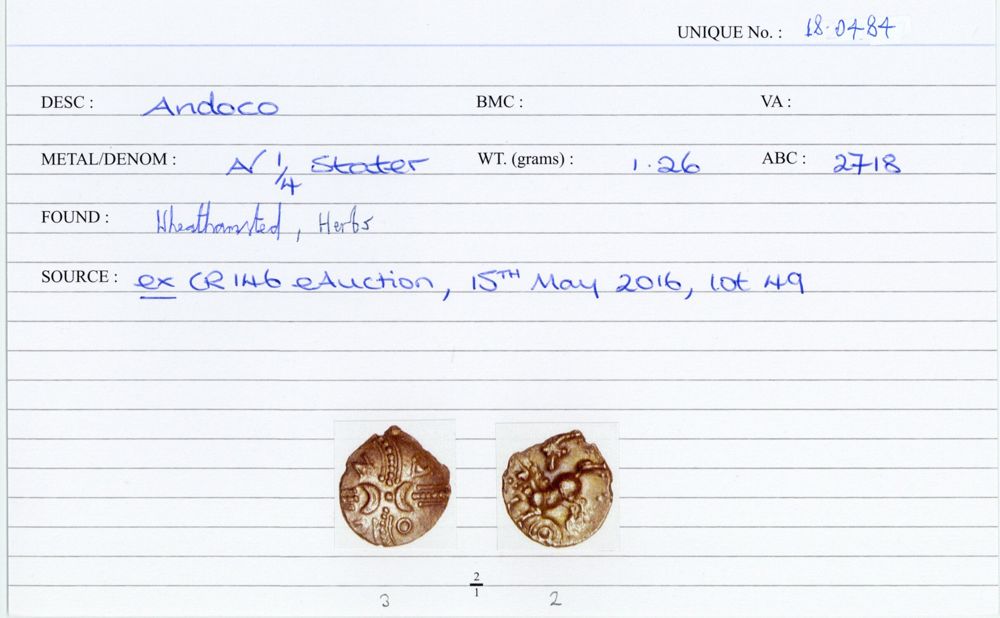 UNIQUE No. : 18.0484
DESC : Andoco BMC : VA :
METAL/DENOM : A/ 1/4 Stater WT. (grams) : 1.26 ABC : 2718
FOUND : Wheathamsted, Herts
SOURCE : ex CR 146 eAuction, 15TH May 2016, lot 49
2/1
3 2